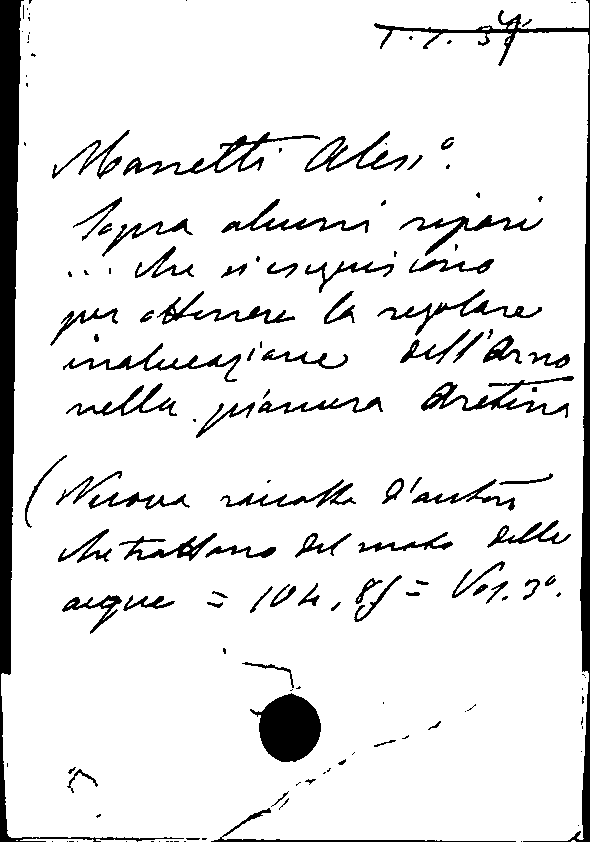 Manetti Aless°.
Sopra alcuni ripari
... che si eseguiscono
per ottenere la regolare
inalveazione dell'Arno
nella pianura Aretina
(Nuova raccolta d'autori
che trattano del moto delle
acque = Vol. 3°.